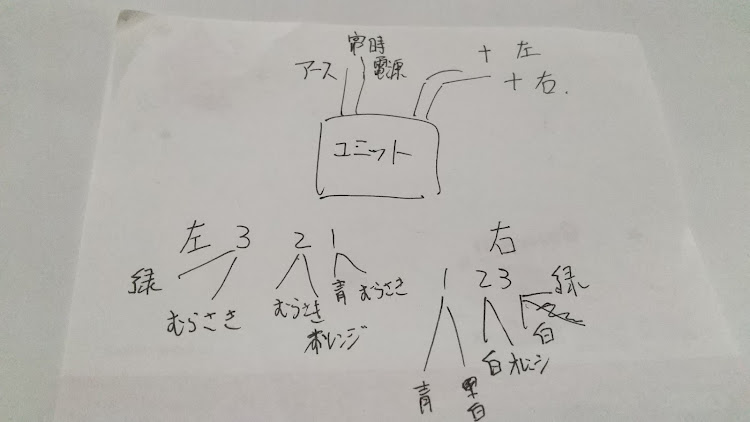 常時
アース 電源
+ 左
+ 右.
ユニット
左 3 2 1
緑 むらさき むらさき オレンジ 青 むらさき
右
1 2 3
青 白 白 オレンジ 緑 白